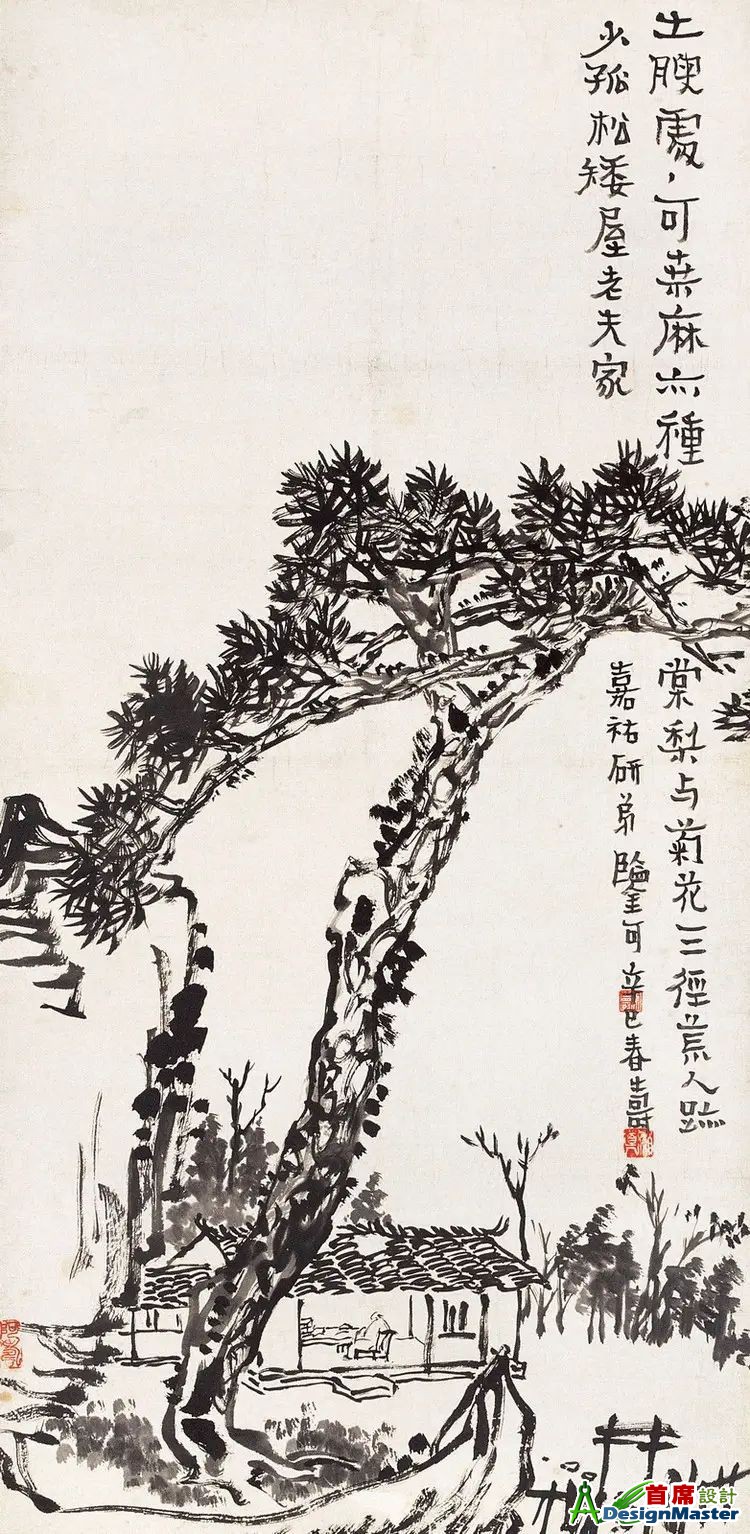 土腴處、可桑麻亦種
棠梨与菊花三徑荒人跡
少孤松矮屋老夫家
嘉祐研弟鑒可辛巳春壽
阿壽
首席設計
ADesignMaster